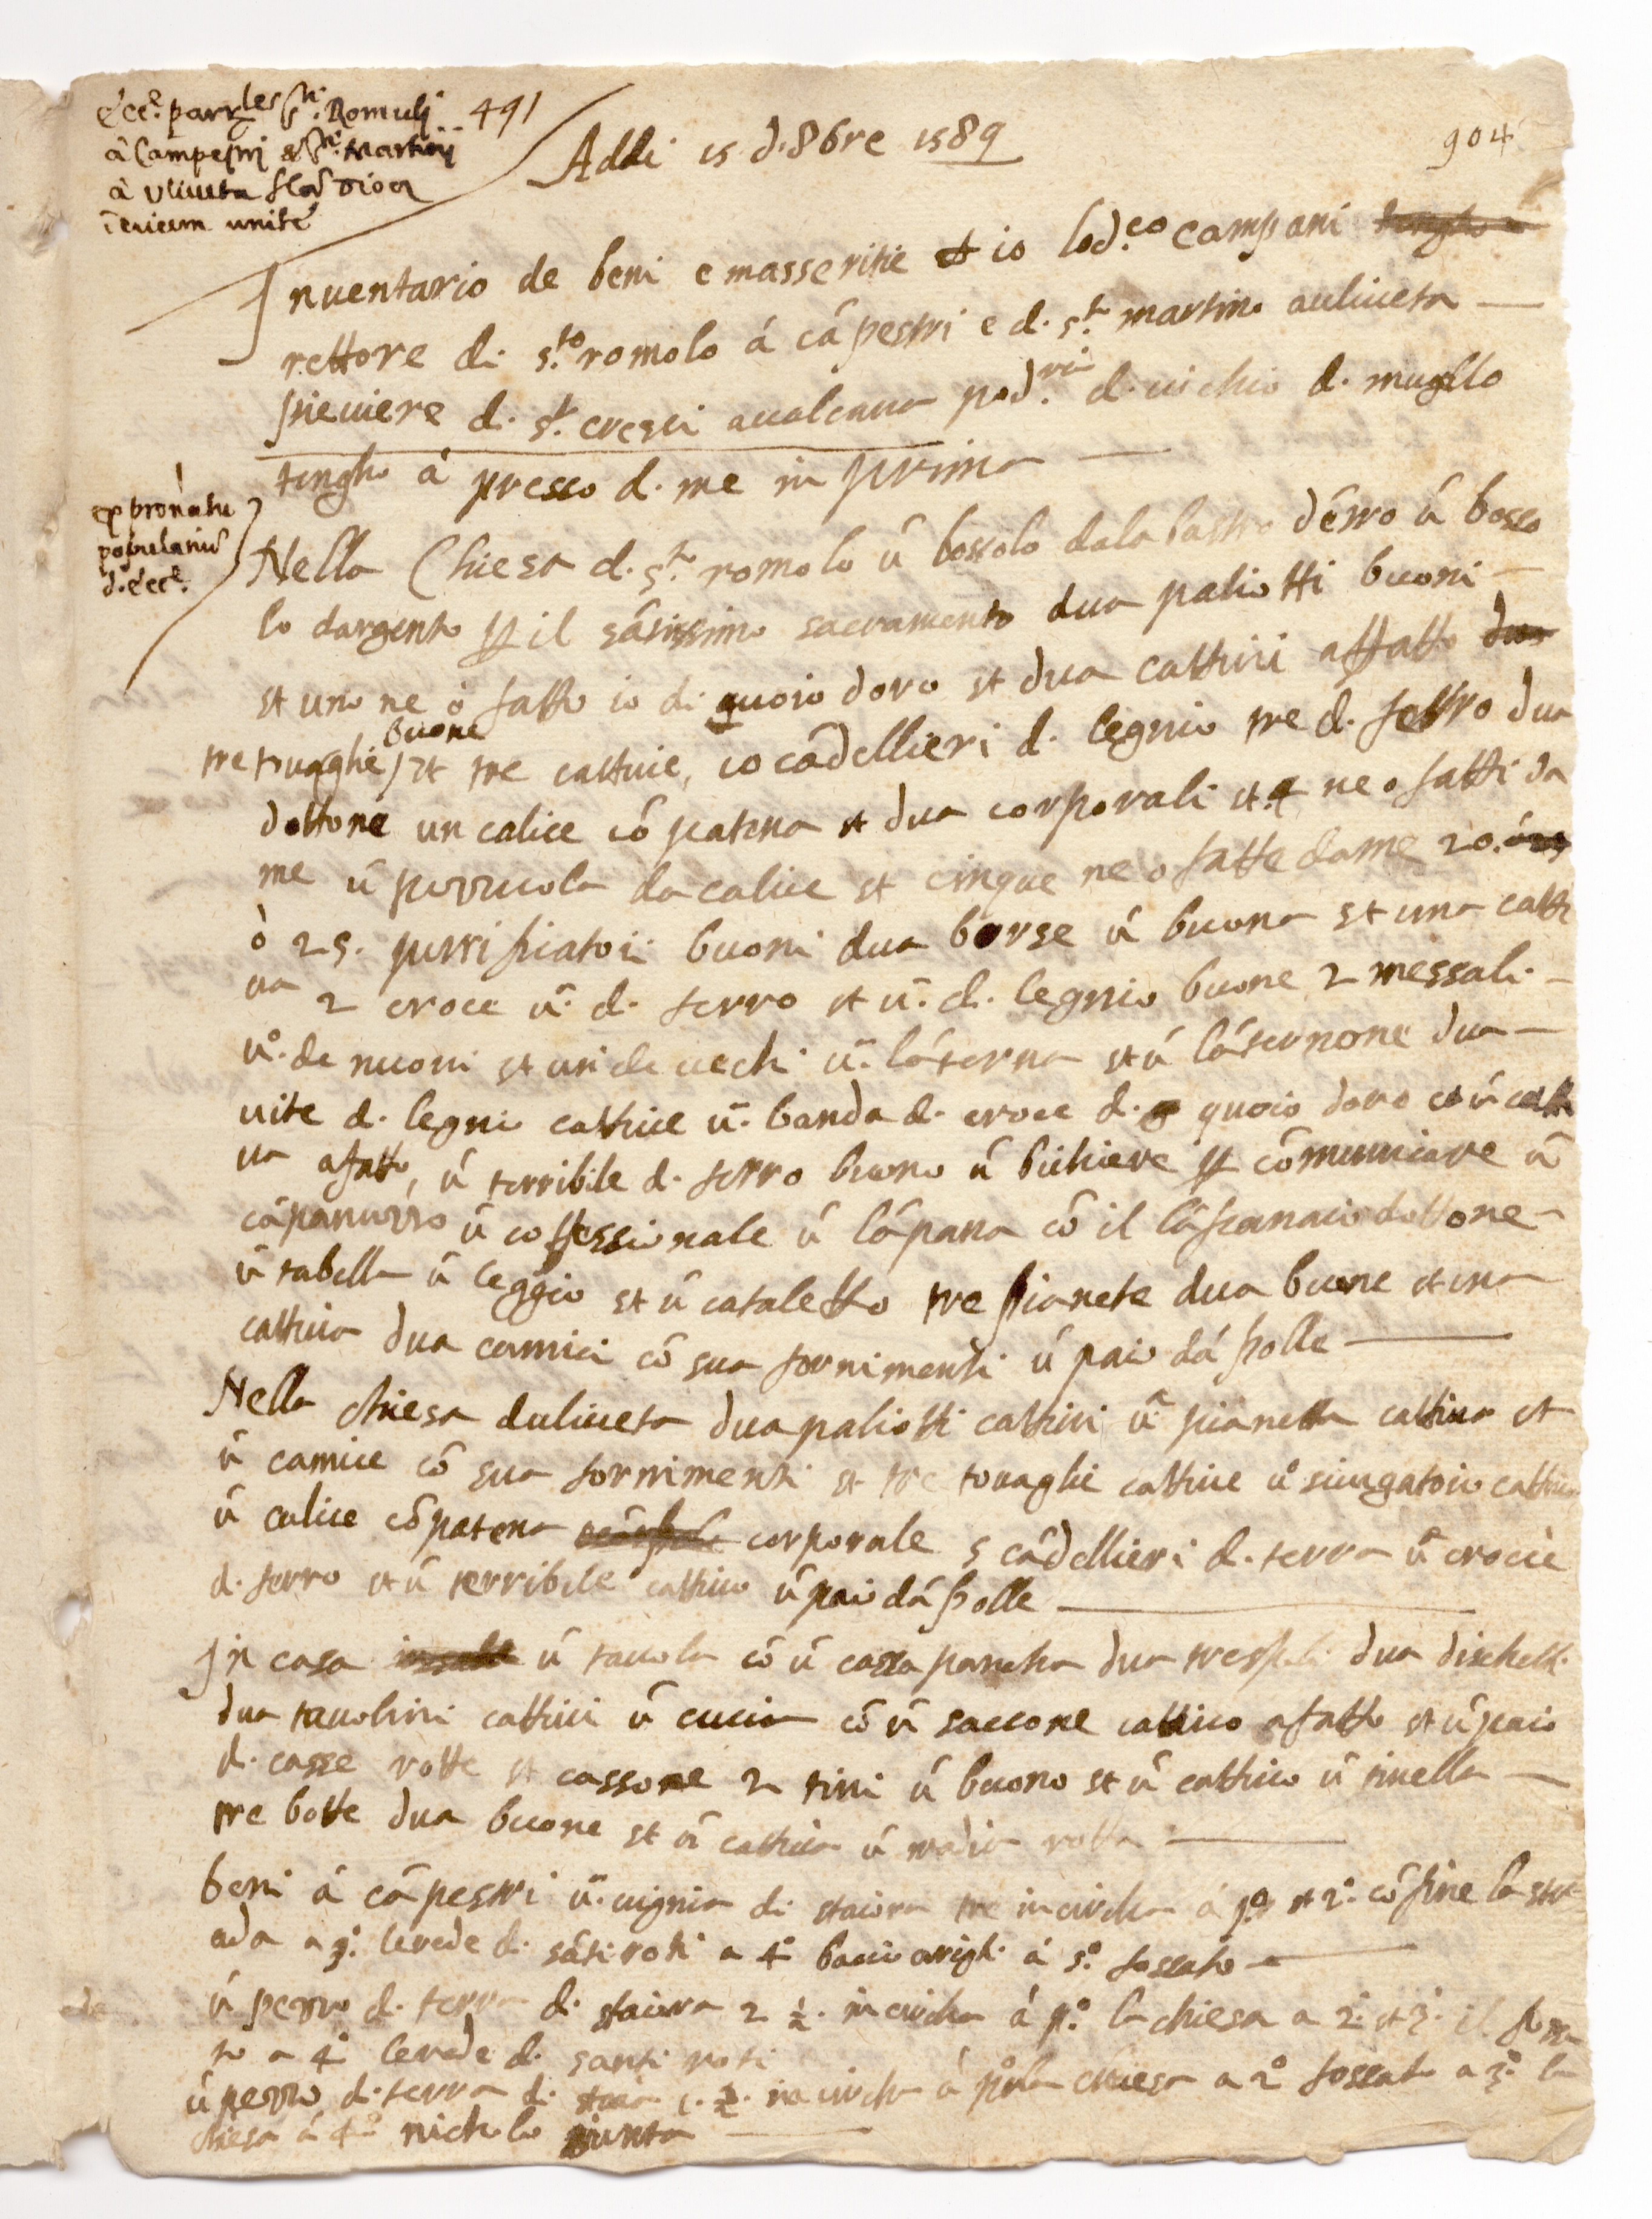 Ecc.e parr.les S.ti Romuli
à Campestri & S.ti Martini
à Uliveta
invicem unite
491
904
Addi 15 d. 8bre 1589
Inventario de beni e masseritie io lod.co campani
rettore di s.to romolo á cãpestri e d. s.to martino auliveta
pieviere d. s.to cresci avalcava pod.ria d. vichio d. mugllo
tengho á presso d. me in prima
ex pronatu
populariũ
d. ecc.e
Nella Chiesa d. s.to romolo ũ bossolo dalabastro dẽtro ũ bosso
lo dargento p il sãtissimo sacramento dua paliotti buoni
et uno ne ò fatto io di quoio doro et dua cattivi affatto
tre tovaglie buone et tre cattive, 10 cãdellieri d. legnio tre d. ferro dua
dottone un calice cõ patena et dua corporali et 4 ne o fatti da
me ũ pezzuola da calice et cinque ne o fatte da me 20.
ò 25. purifichatoi buoni dua borse ũ buona et una catti
va 2 croce ũ. d. ferro et ũ. d. legnio buone 2 messali
ũ. de nuovi et un de vechi ũ. lãterna et ũ lãternone dua
vite d. legnio cattive ũ. banda d. croce d. quoio doro et ũ catti
va afatto, ũ terribile d. ferro buono ũ bichiere p cõmunicare ũ
cãpanuzzo ũ cofessionale ũ lãpana cõ il lãpanaio dottone
ũ tabella ũ leggio et ũ cataletto tre pianete dua buone et una
cattiva dua camici cõ sua fornimenti ũ paio dã polle
Nella chiesa duliveta dua paliotti cattivi ũ pianetta cattiva et
ũ camice cõ sua fornimenti et tre tovaglie cattive ũ sciugatoio cattivo
ũ calice cõ patena corporale 5 cãdellieri d. terra ũ crocie
d. ferro et ũ terribile cattivo ũ paio dã polle
In casa ũ tavola cõ ũ cassa pancha dua trespoli dua dischetti
dua tavolini cattivi ũ cucia cõ ũ saccone cattivo afatto et ũ paio
d. casse rotte et cassone 2 tini ũ buono et ũ cattivo ũ tinella
tre botte dua buone et ũ cattiva ũ madia rotta
beni á cãpestri ũ. vignia di staiora tre in circha á p.o et 2.o cõfine la str
ada a 3.o lerede d. sãti roti a 4.o baccio arigli á 5.o fossato
ũ pezzo d. terra d. staiora 2 ½ in circha á p.o la chiesa a 2.o et 3.o il fossa
to a 4.o lerede d. santi roti
ũ pezzo d. terra di 1. ½. in circha á p.o la chiesa a 2.o fossato a 3.o la
chiesa á 4.o nicholo giunta